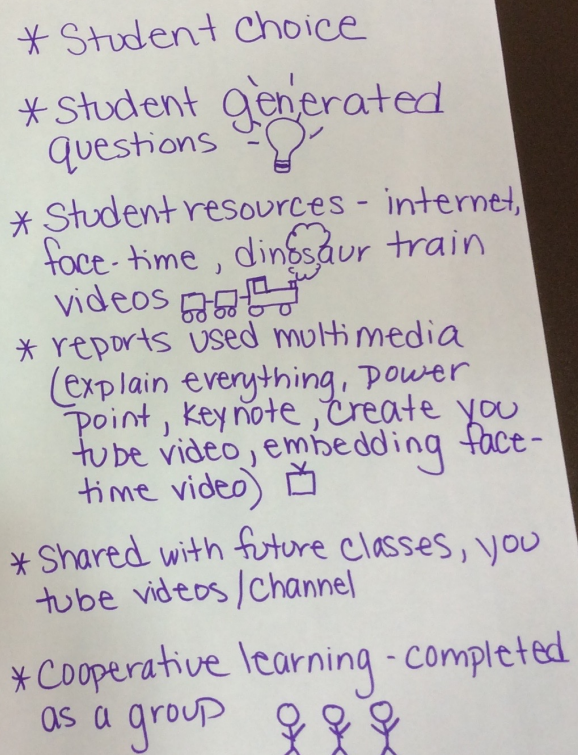 * Student choice
* Student generated
questions
* Student resources - internet,
face-time, dinosaur train
videos
* reports used multimedia
(explain everything, power
point, keynote, create you
tube video, embedding face-
time video)
* Shared with future classes, you
tube videos/channel
* Cooperative learning - completed
as a group